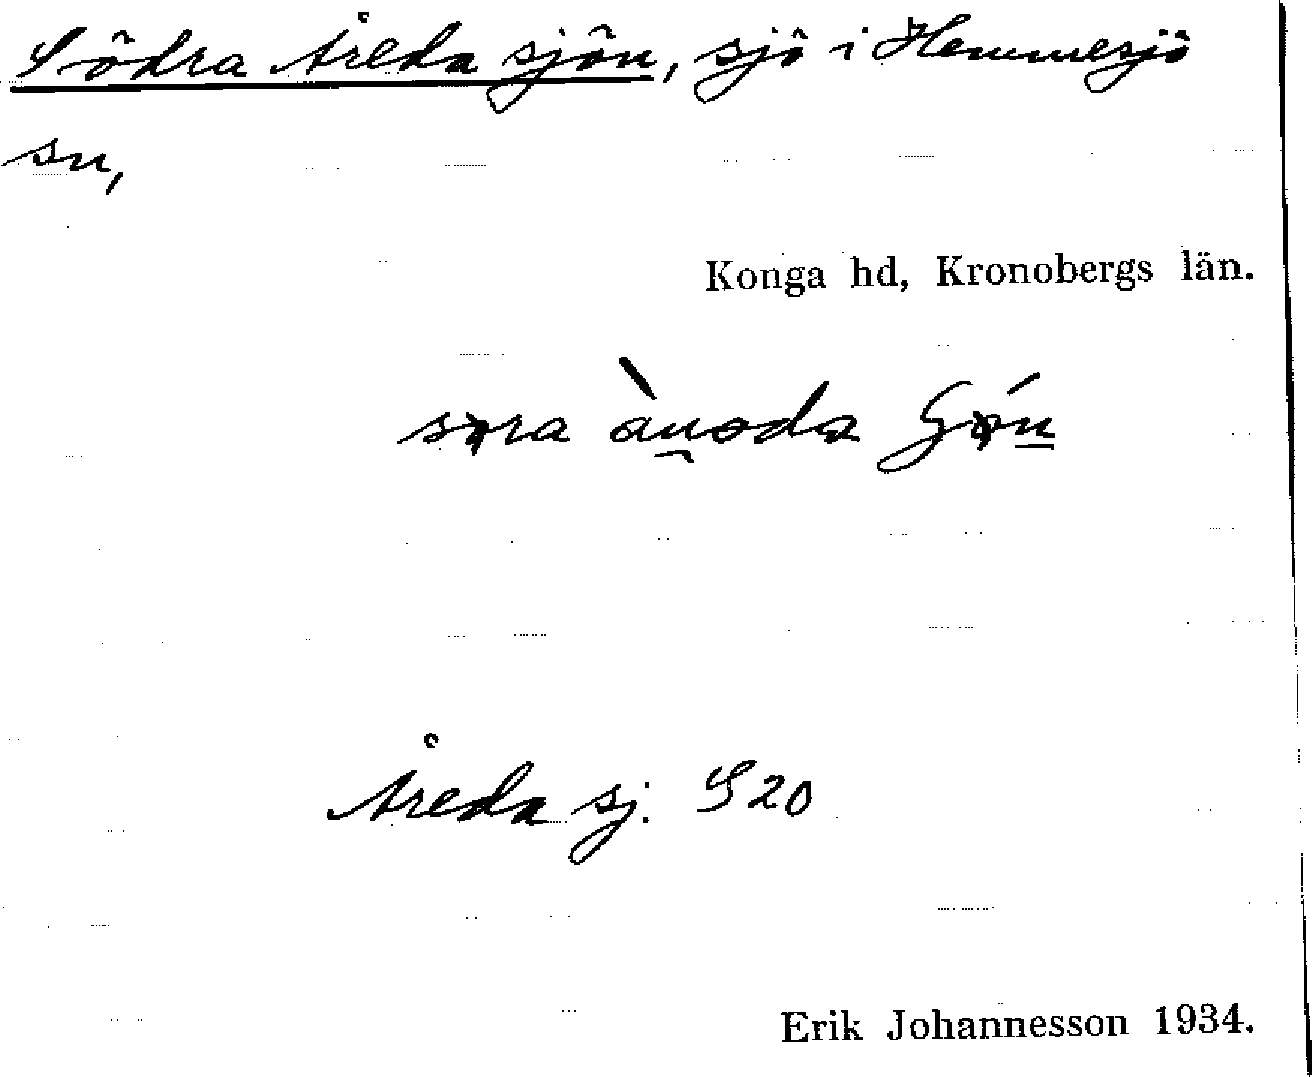 Södra Åreda sjön, sjö i Hemmesjö
sn,
Konga hd, Kronobergs län.
Åreda sj. S20
Erik Johannesson 1934.